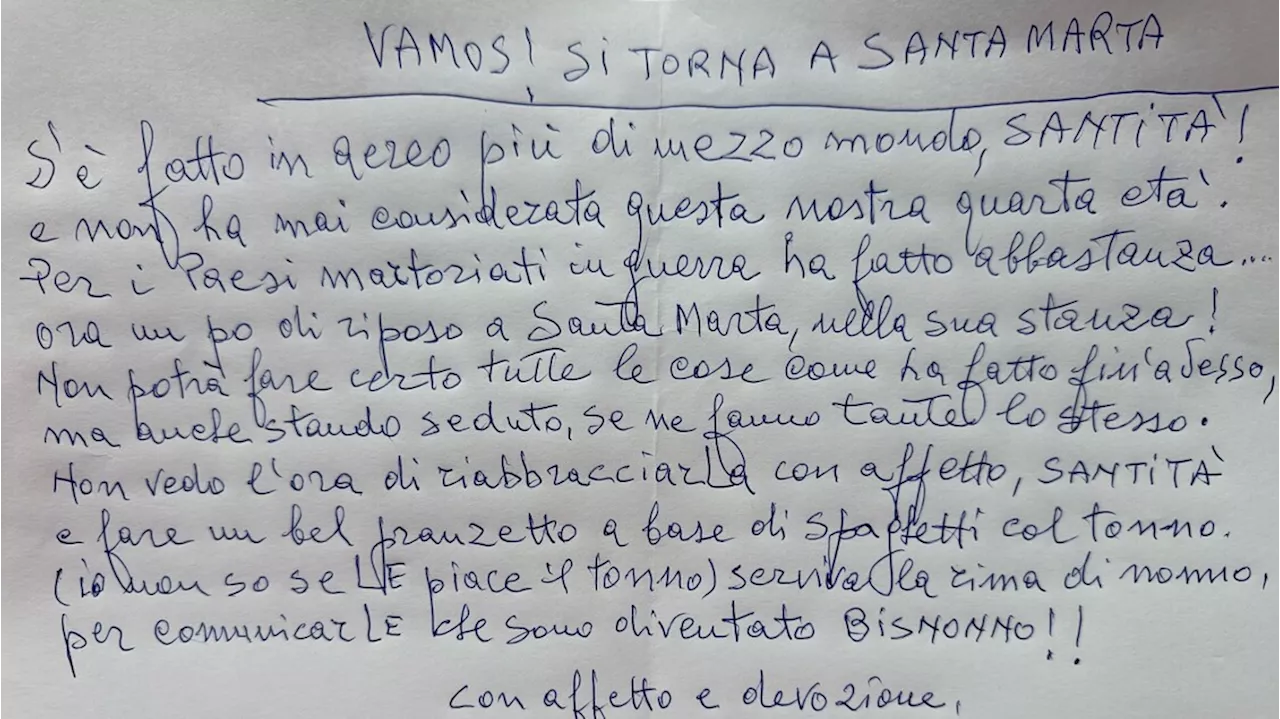 VAMOS! SI TORNA A SANTA MARTA
S'è fatto in aereo più di mezzo mondo, SANTITÀ!
e non ha mai considerata questa nostra quarta età.
Per i Paesi martoriati in guerra ha fatto abbastanza....
ora un po di riposo a Santa Marta, nella sua stanza!
Non potrà fare certo tutte le cose come ha fatto fin'adesso,
ma anche stando seduto, se ne fanno tante lo stesso.
Non vedo l'ora di riabbracciarLa con affetto, SANTITÀ
e fare un bel pranzetto a base di spaghetti col tonno.
(io non so se LE piace il tonno) serviva la rima di nonno,
per comunicarLE che sono diventato BISNONNO!!
con affetto e devozione,